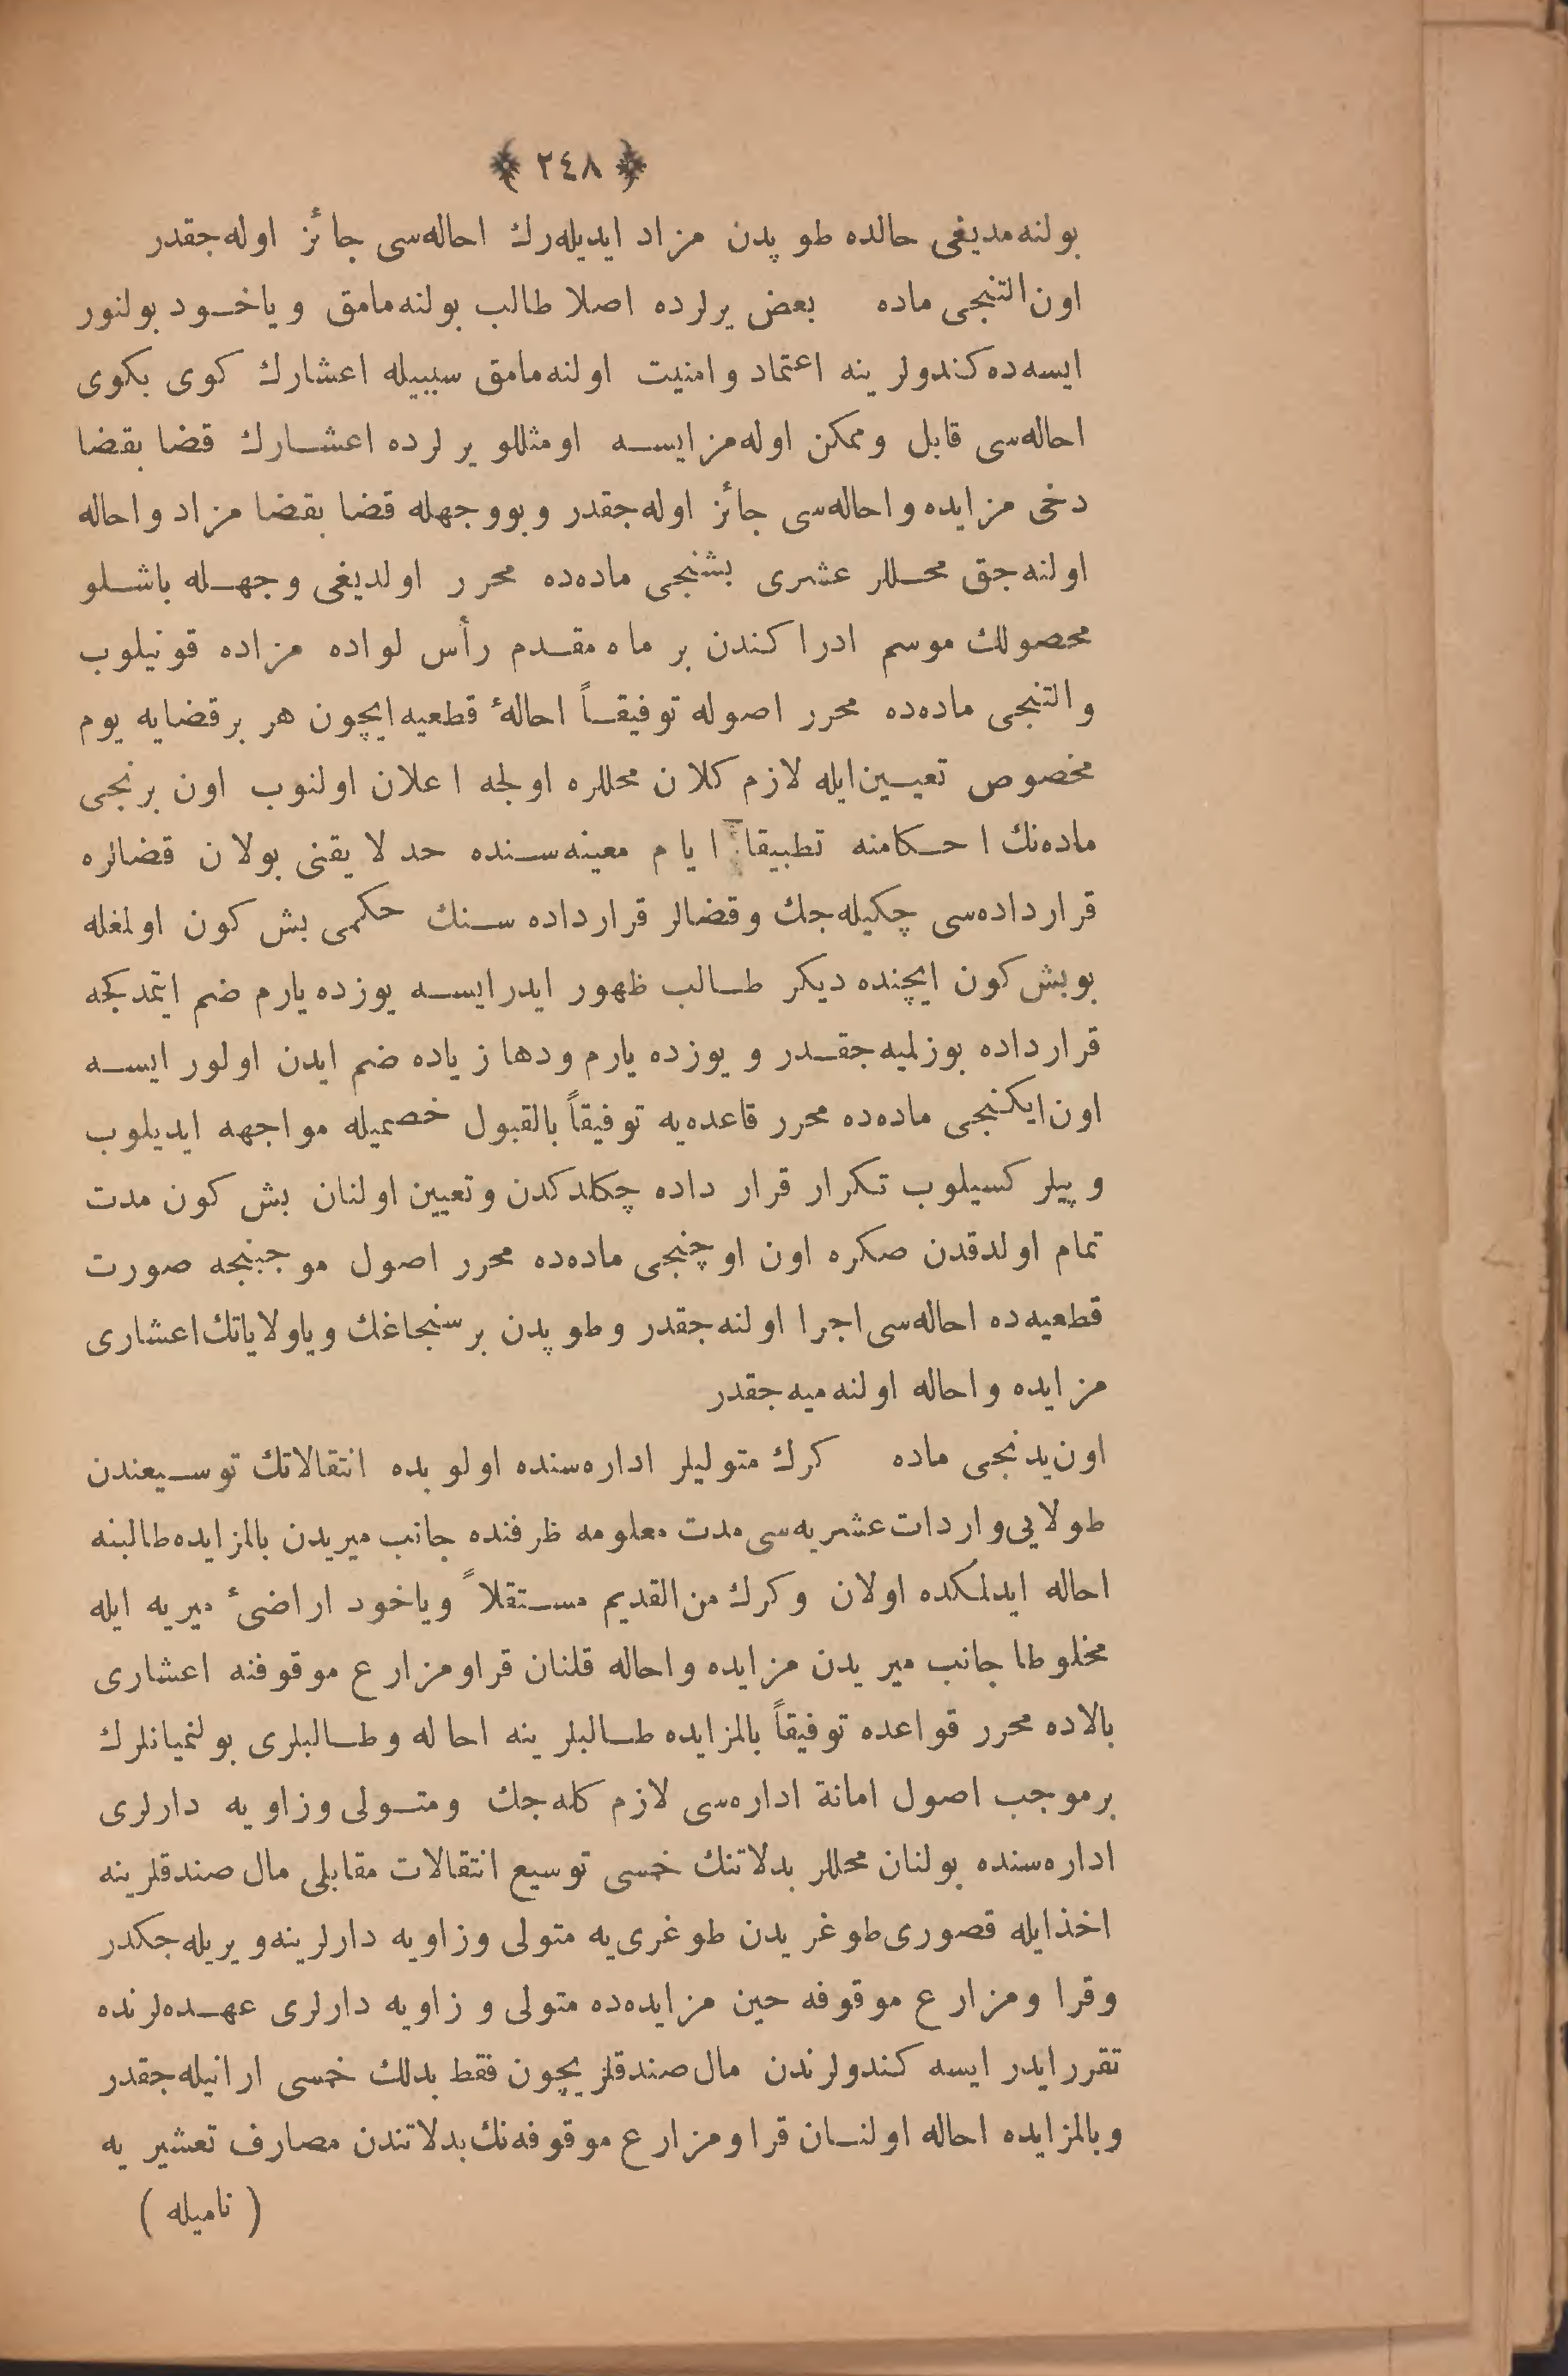 ﴿ ٢٤٨ ﴾
بولنه‌مدیغی حالده طوپدن مزاد ایدیله‌رك احاله‌سی جائز اوله‌جقدر
اون‌التنجی ماده بعض یرلرده اصلا طالب بولنه‌مامق ویاخود بولنور
ایسه‌ده کندولرینه اعتماد وامنیت اولنه‌مامق سببیله اعشارك کوی بکوی
احاله‌سی قابل وممکن اوله‌مز ایسه اومثللو یرلرده اعشارك قضا بقضا
دخی مزایده واحاله‌سی جائز اوله‌جقدر وبووجهله قضا بقضا مزاد واحاله
اولنه‌جق محللر عشری بشنجی ماده‌ده محرر اولدیغی وجهله باشلو
محصولك موسم ادراکندن بر ماه مقدم رأس لواده مزاده قونیلوب
والتنجی ماده‌ده محرر اصوله توفیقاً احالهٔ قطعیه ایچون هر برقضایه یوم
مخصوص تعیین ایله لازم کلان محللره اولجه اعلان اولنوب اون برنجی
ماده‌نك احکامنه تطبیقا ایام معینه‌سنده حد لایقنی بولان قضالره
قرارداده‌سی چکیله‌جك وقضالر قرارداده سنك حکمی بش کون اولغله
بوبش کون ایچنده دیکر طالب ظهور ایدرایسه یوزده یارم ضم ایتمدکجه
قرارداده بوزلمیه‌جقدر و یوزده یارم ودها زیاده ضم ایدن اولور ایسه
اون‌ایکنجی ماده‌ده محرر قاعده‌یه توفیقاً بالقبول خصمیله مواجهه ایدیلوب
وپیلر کسیلوب تکرار قرار داده چکلدکدن وتعیین اولنان بش کون مدت
تمام اولدقدن صکره اون اوچنجی ماده‌ده محرر اصول موجبنجه صورت
قطعیه‌ده احاله‌سی اجرا اولنه‌جقدر وطوپدن برسنجاغك ویاولایاتك اعشاری
مزایده واحاله اولنه‌میه‌جقدر
اون‌یدنجی ماده کرك متولیلر اداره‌سنده اولوبده انتقالاتك توسیعندن
طولایی‌واردات عشریه‌سی مدت معلومه ظرفنده جانب میریدن بالمزایده‌طالبنه
احاله ایدلمکده اولان وکرك من‌القدیم مستقلاً ویاخود اراضیٔ میریه ایله
مخلوطا جانب میریدن مزایده واحاله قلنان قراومزارع موقوفنه اعشاری
بالاده محرر قواعده توفیقاً بالمزایده طالبلرینه احاله وطالبلری بولنمیانلرك
برموجب اصول امانة اداره‌سی لازم کله‌جك ومتولی وزاویه دارلری
اداره‌سنده بولنان محللر بدلاتنك خمسی توسیع انتقالات مقابلی مال صندقلرینه
اخذایله قصوری‌طوغریدن طوغری‌یه متولی وزاویه دارلرینه‌ویریله‌جکدر
وقرا ومزارع موقوفه حین مزایده‌ده متولی و زاویه دارلری عهده‌لرنده
تقررایدر ایسه کندولرندن مال‌صندقلریچون فقط بدلك خمسی ارانیله‌جقدر
وبالمزایده احاله اولنان قراومزارع موقوفه‌نك‌بدلاتندن مصارف تعشیریه
( نامیله )